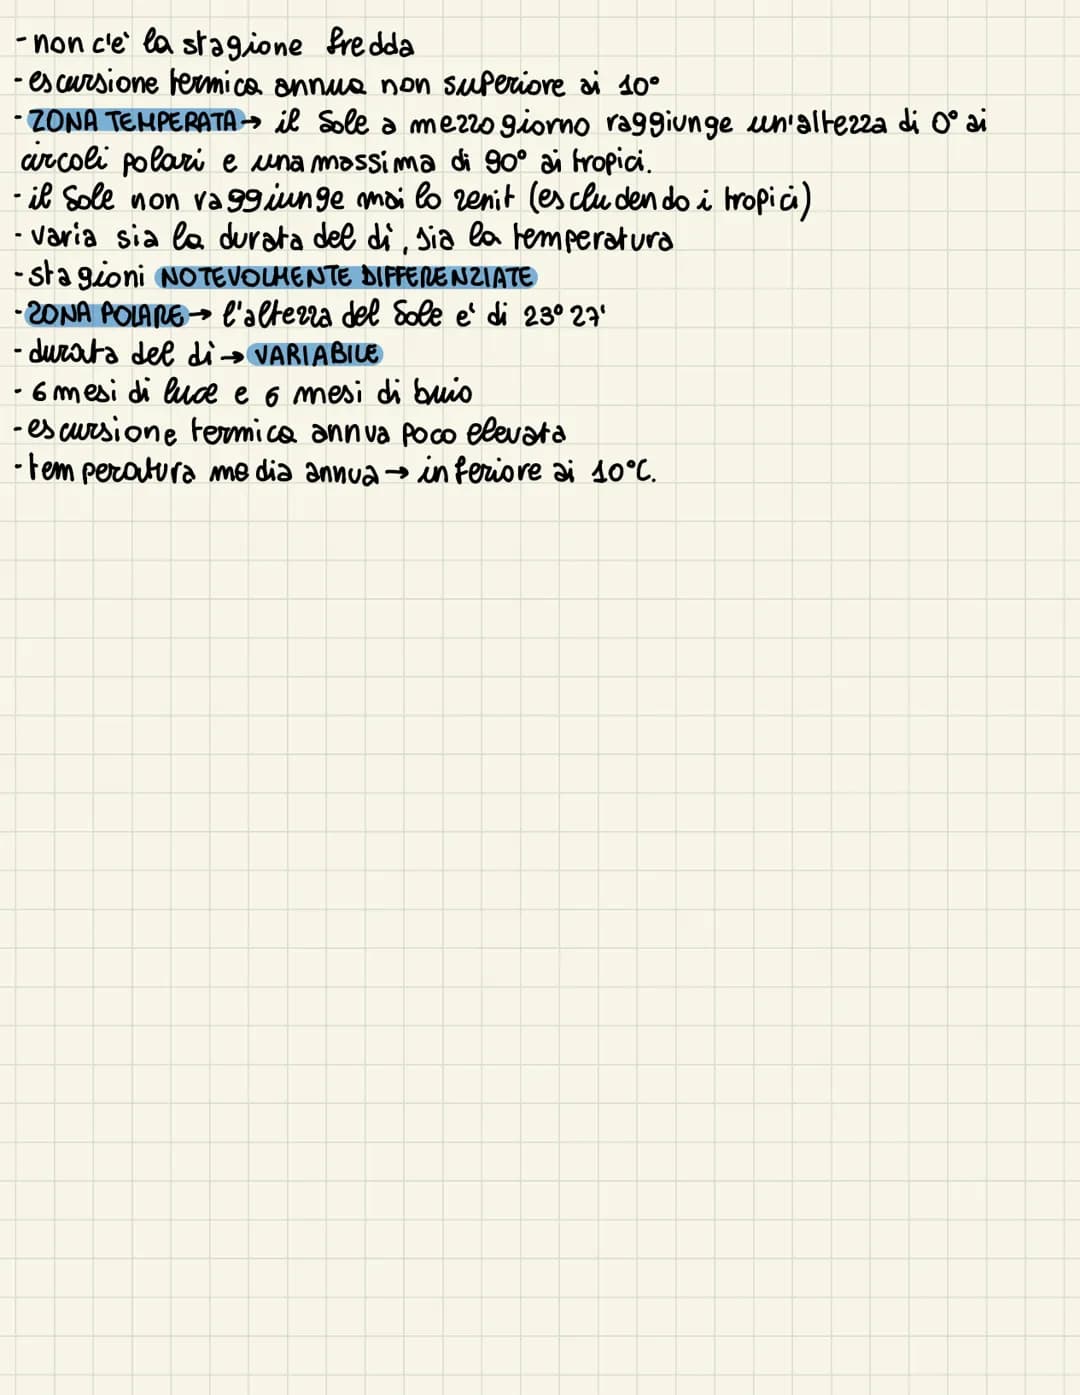 - non c'è la stagione fredda
- escursione termica annua non superiore ai 10°
- ZONA TEMPERATA → il Sole a mezzogiorno raggiunge un'altezza di 0° ai
circoli polari e una massima di 90° ai tropici.
- il Sole non raggiunge mai lo zenit (escludendo i tropici)
- varia sia la durata del dì, sia la temperatura
- stagioni NOTEVOLMENTE DIFFERENZIATE
- ZONA POLARE → l'altezza del Sole e' di 23° 27'
- durata del dì → VARIABILE
- 6 mesi di luce e 6 mesi di buio
- escursione termica annua poco elevata
- temperatura media annua → inferiore ai 10°C.